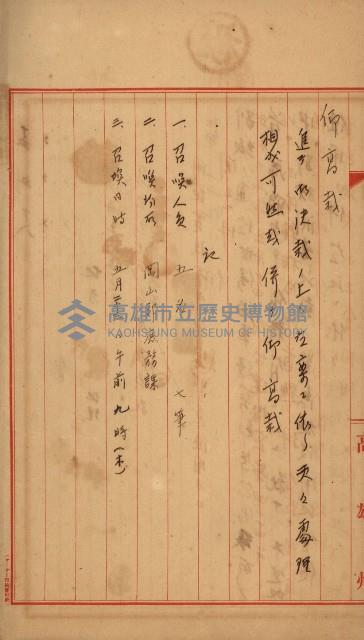 仰高裁
決裁ノ上左案ニ依リ夫々處理
相成可然哉併 仰高裁
記
一、召喚人員 五 七筆
二、召喚場所 岡山 庶務課
三、召喚日時 五月 日午前九時(木)
高雄州
高雄市立歷史博物館
KAOHSIUNG MUSEUM OF HISTORY